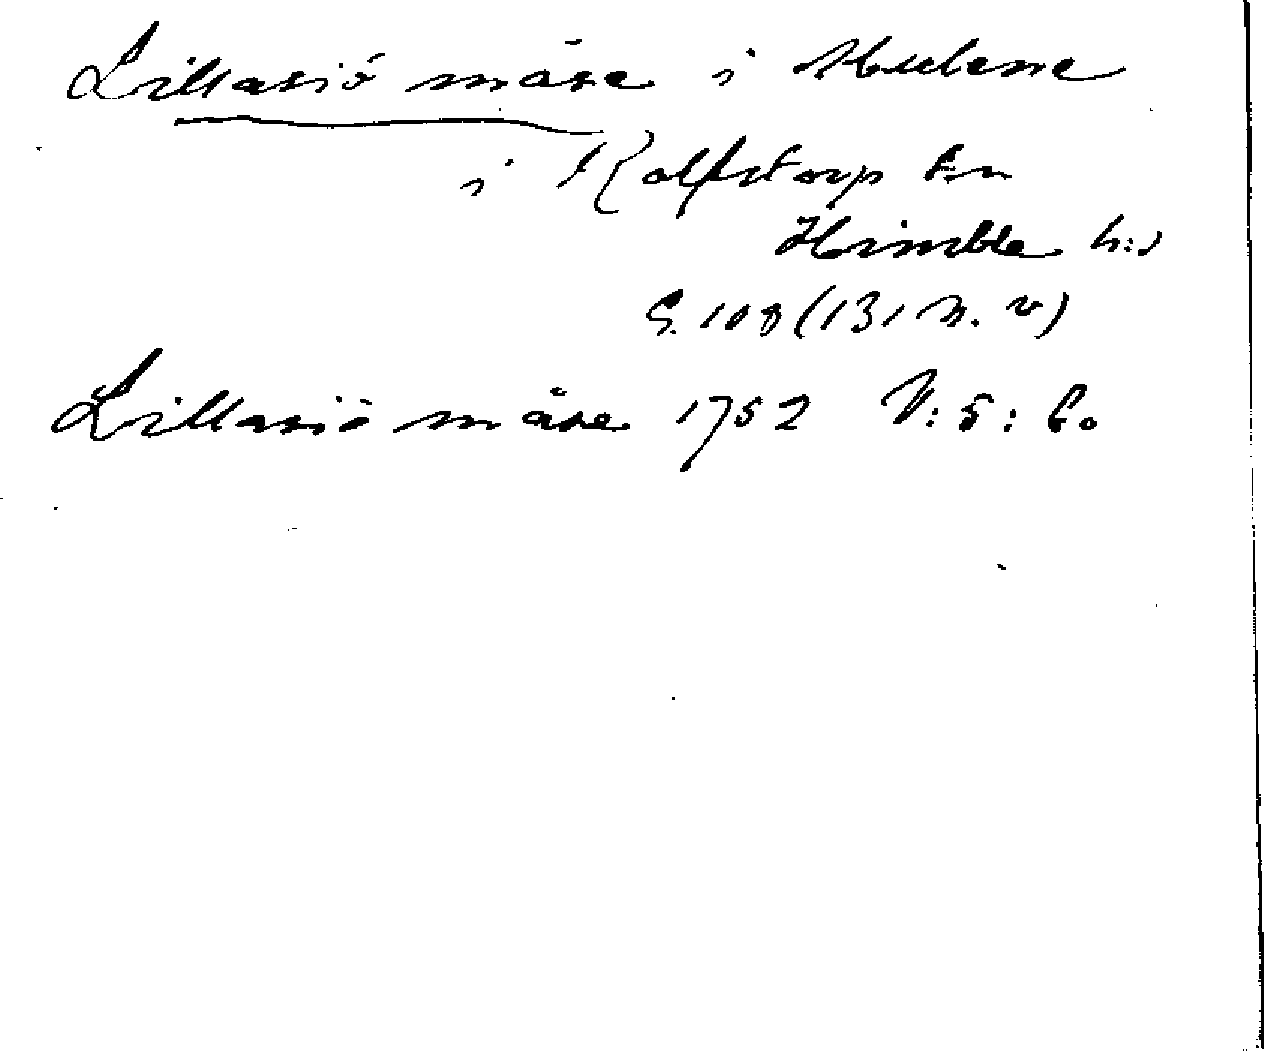 Lillasjö måse i Hulene
i Rolfstorp sn
Himble h:d
S. 108 (131 n. v)
Lillasiö måse 1752 V: 5: 60